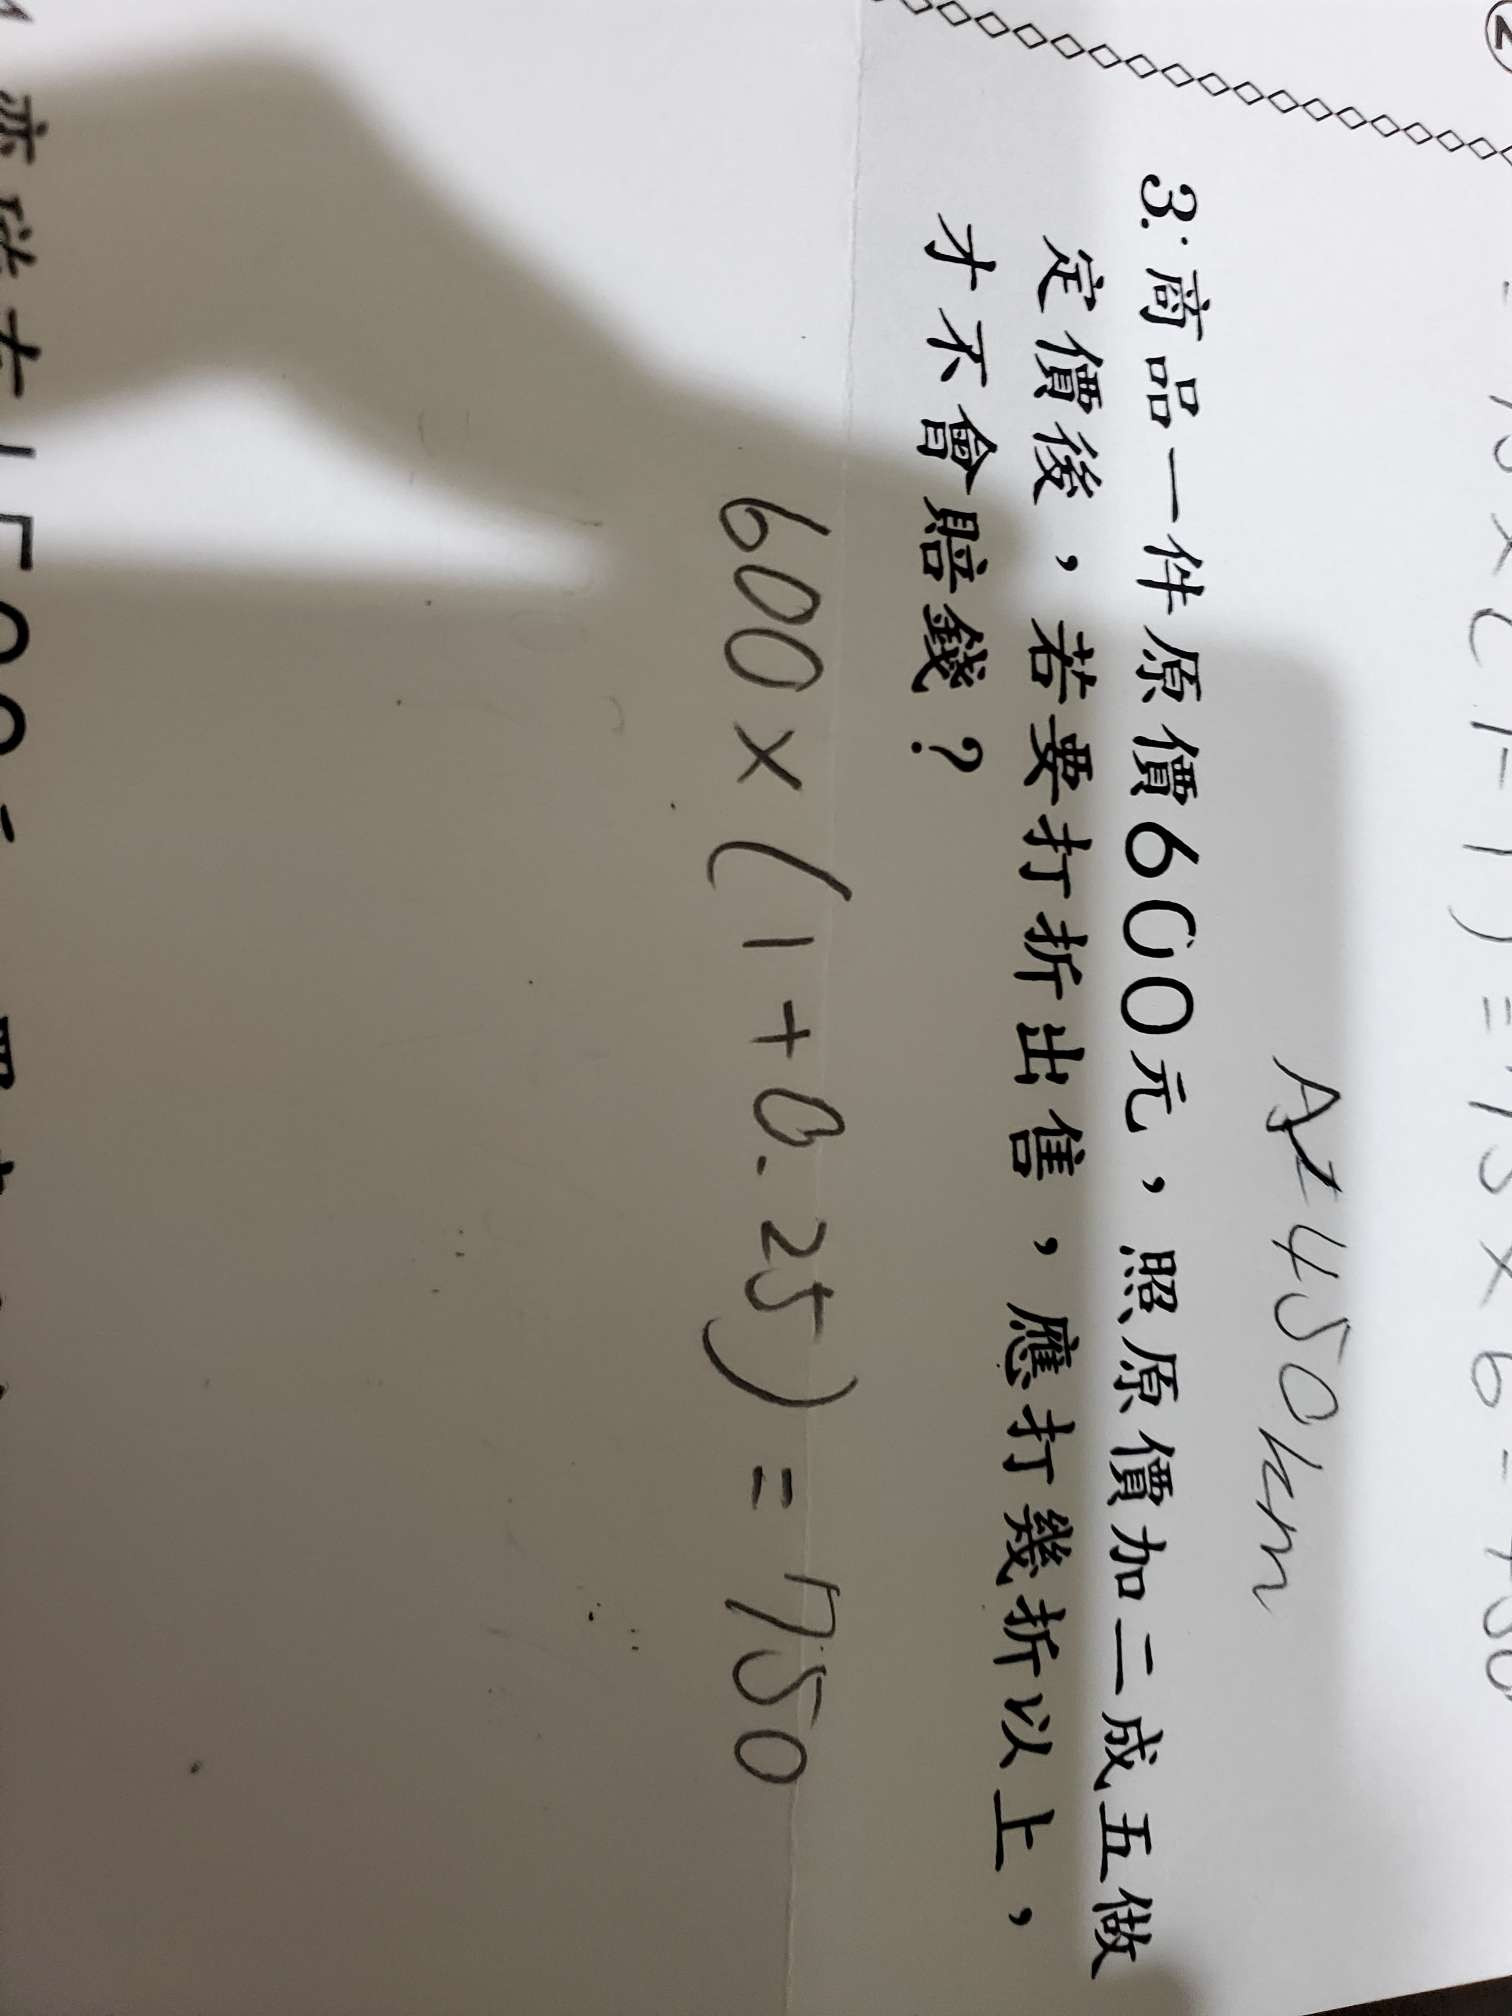 ②
= 75 × (7-1) = 75 × 6 = 450
A: 450km
3. 商品一件原價600元，照原價加二成五做
定價後，若要打折出售，應打幾折以上，
才不會賠錢？
600 × (1 + 0.25) = 750